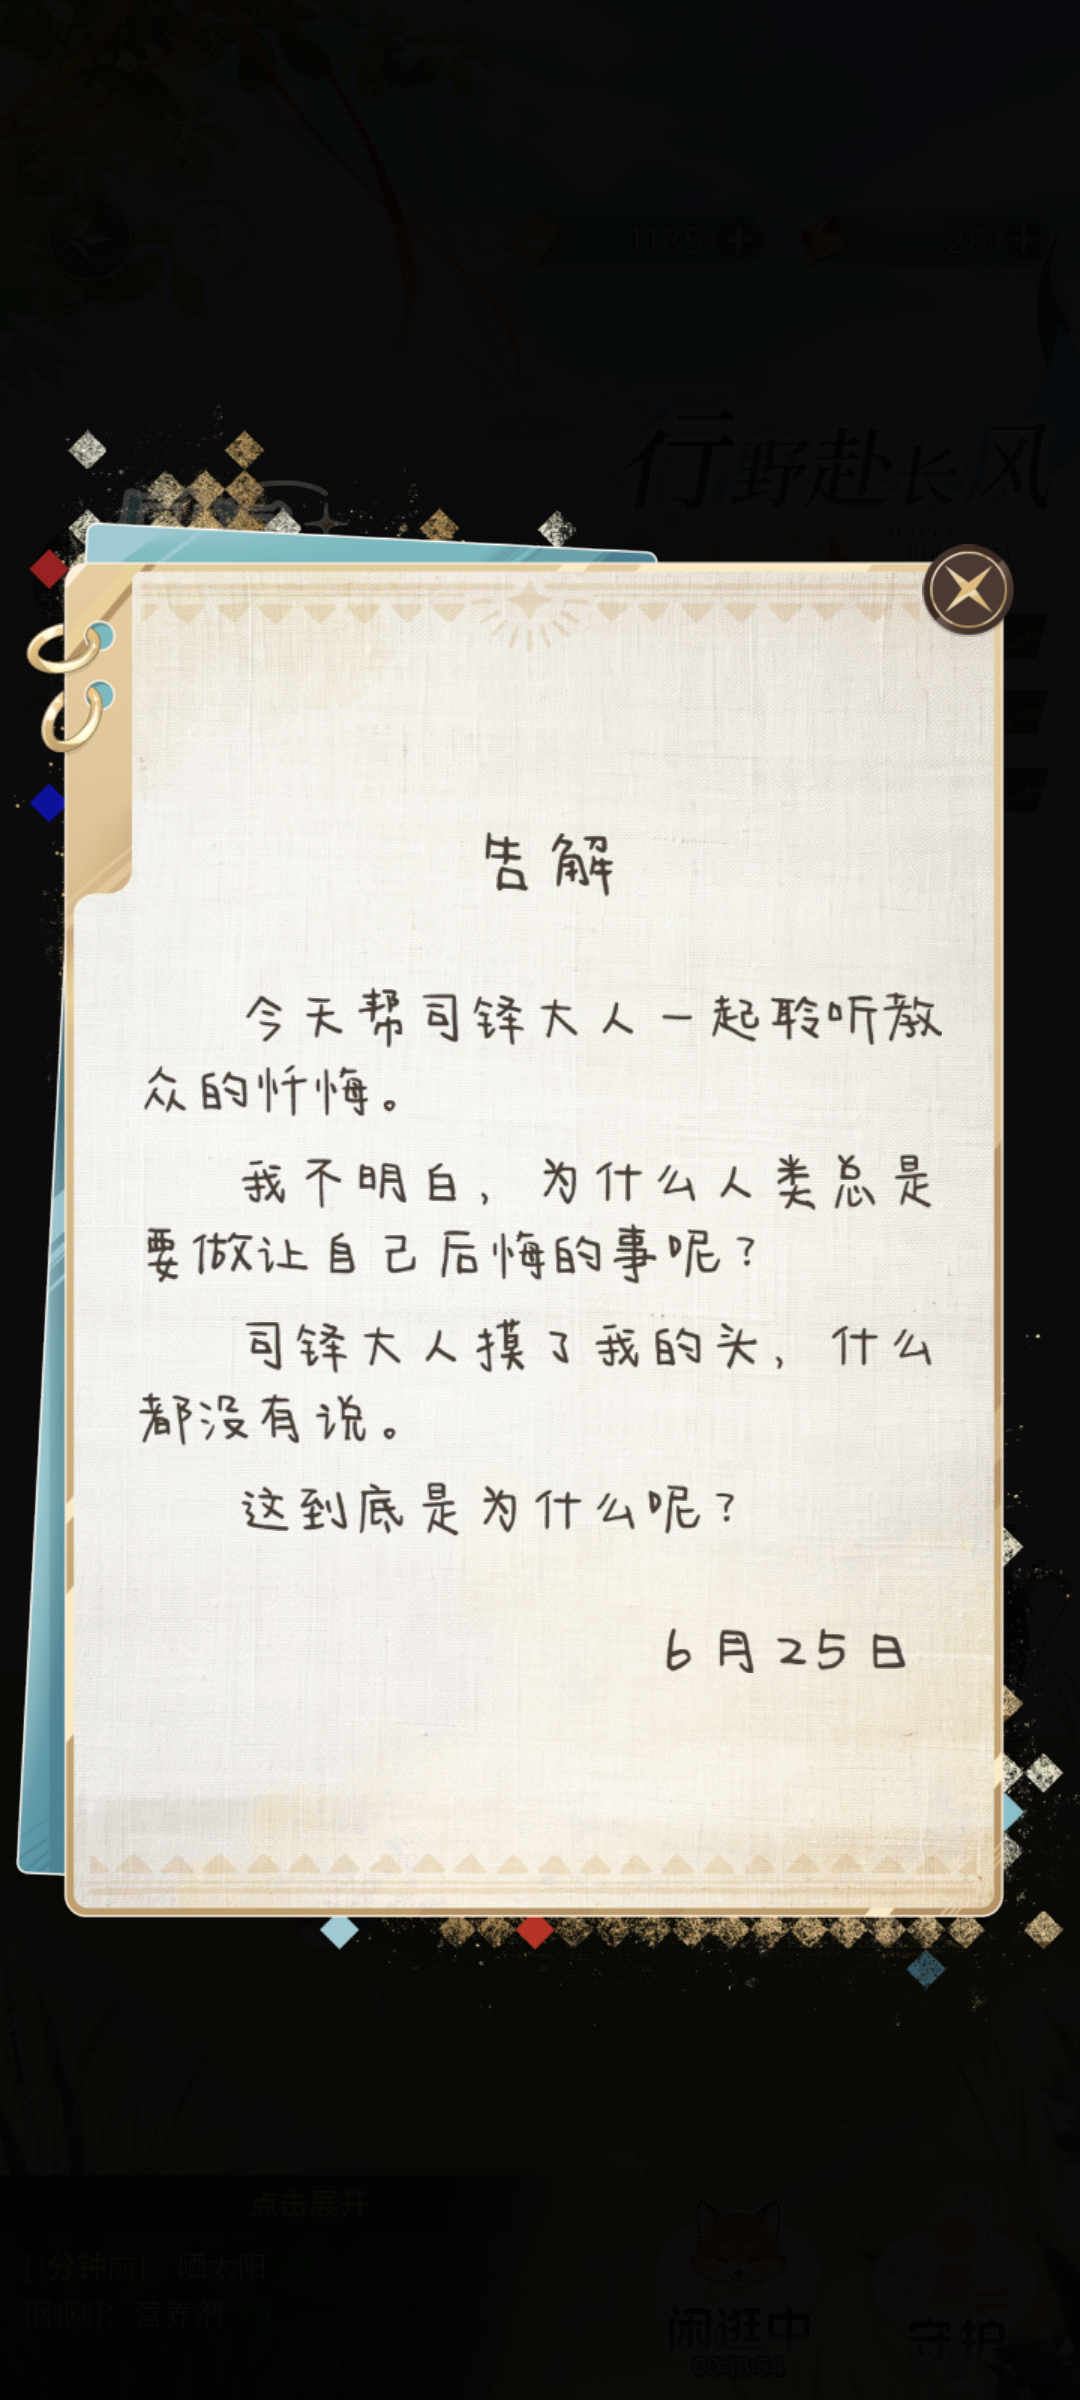 1185
28
行野赴长风
HAPPY
告解
今天帮司铎大人一起聆听教
众的忏悔。
我不明白，为什么人类总是
要做让自己后悔的事呢？
司铎大人摸了我的头，什么
都没有说。
这到底是为什么呢？
6月25日
点击展开
[1分钟前]：晒太阳 +9
[刚刚]：营养剂 +9
闲逛中
守护
00:18:54